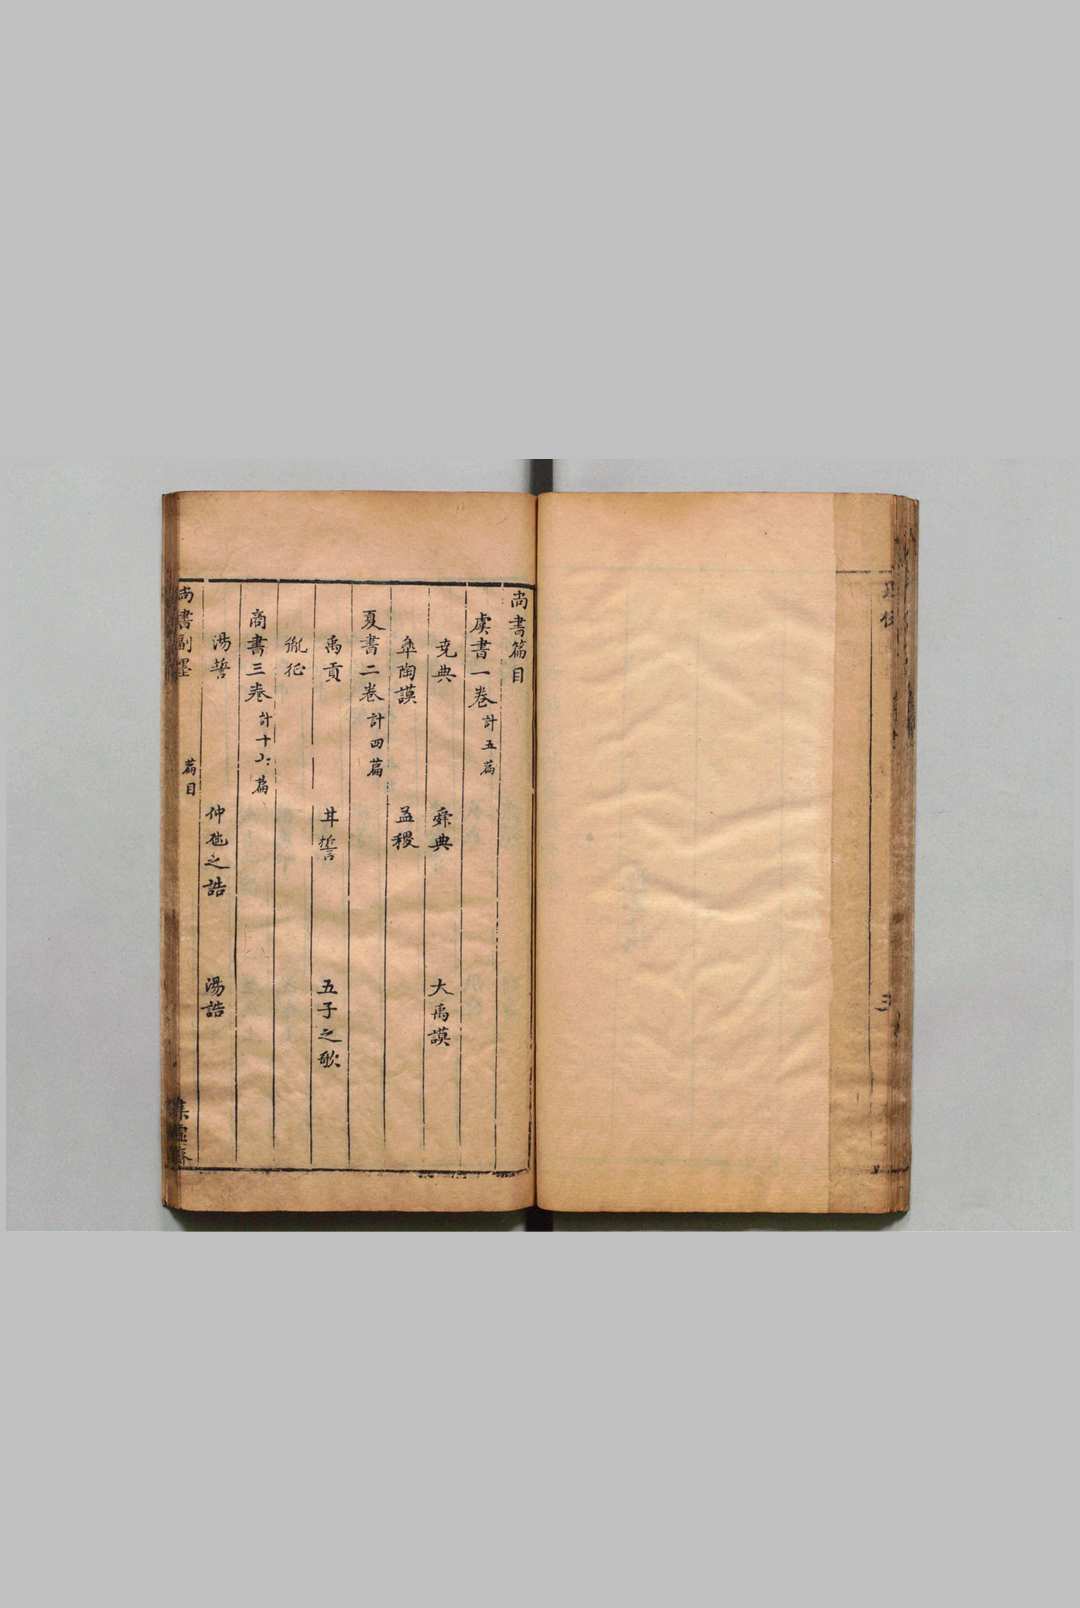 尚書篇目
虞書一卷計五篇
尭典 舜典 大禹謨
皐陶謨 益稷
夏書二卷計四篇
禹貢 甘誓 五子之歌
胤征
商書三卷計十七篇
湯誓 仲虺之誥 湯誥
尚書副墨 篇目 集虛齋